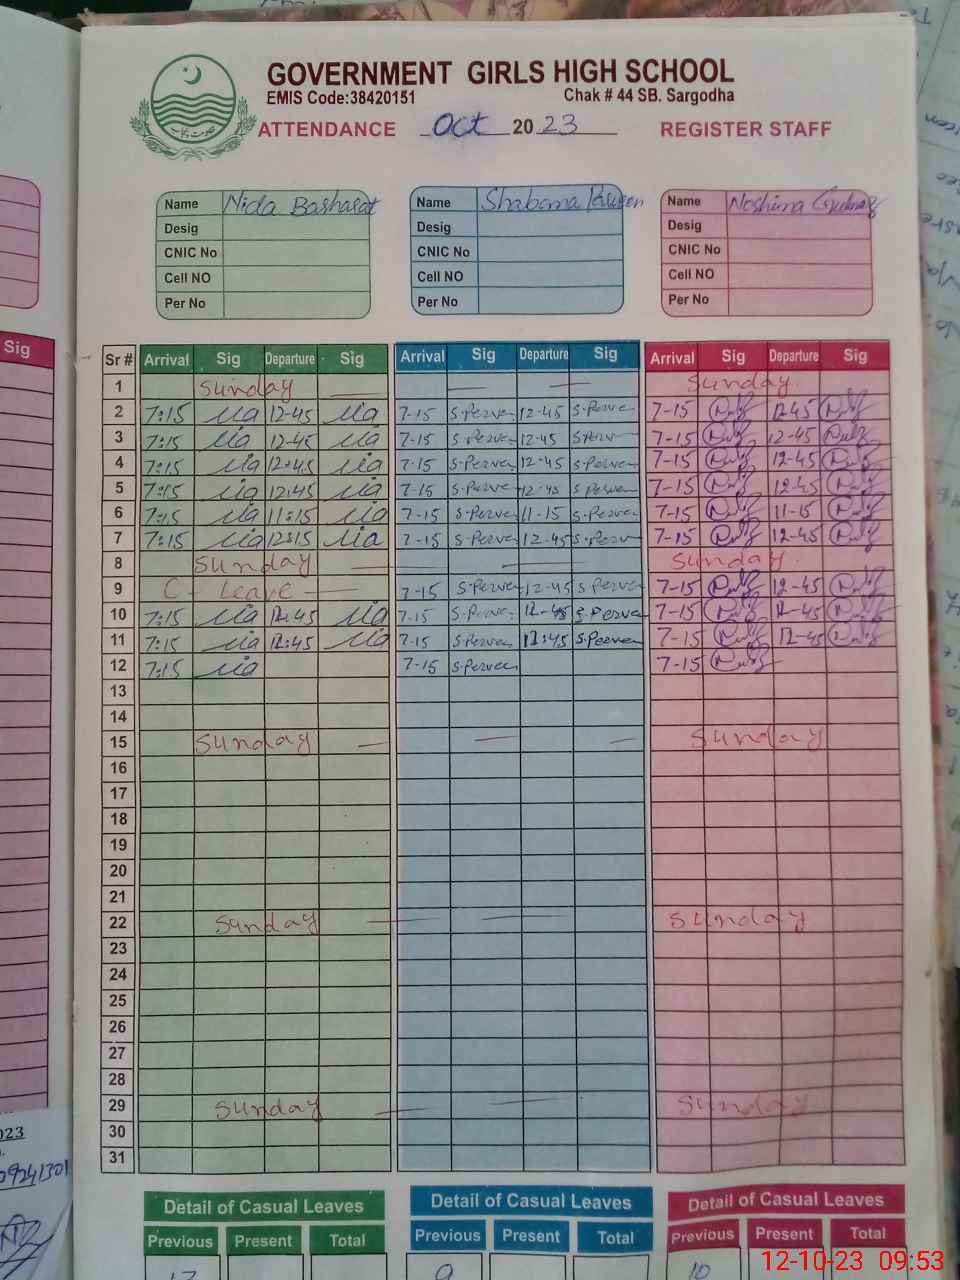 GOVERNMENT GIRLS HIGH SCHOOL
EMIS Code:38420151 Chak # 44 SB. Sargodha
ATTENDANCE Oct 2023 REGISTER STAFF
Name Nida Basharat
Desig
CNIC No
Cell NO
Per No
Name Shabana
Desig
CNIC No
Cell NO
Per No
Name Noshina
Desig
CNIC No
Cell NO
Per No
Sig
Sr # Arrival Sig Departure Sig Arrival Sig Departure Sig Arrival Sig Departure Sig
1 Sunday — — — Sunday
2 7:15 12-45 7-15 S.Perveen 12-45 S.Perveen 7-15 12-45
3 7:15 12-45 7-15 S.Perveen 12-45 7-15 12-45
4 7:15 12:45 7-15 S.Perveen 12-45 S.Perveen 7-15 12-45
5 7:15 12:45 7-15 S.Perveen 12-45 S.Perveen 7-15 12-45
6 7:15 11:15 7-15 S.Perveen 11-15 S.Perveen 7-15 11-15
7 7:15 12:15 7-15 S.Perveen 12-45 S.Perveen 7-15 12-45
8 Sunday — — Sunday
9 C- Leave — 7-15 S.Perveen 12-45 S.Perveen 7-15 12-45
10 7:15 12:45 7-15 S.Perveen 12-45 S.Perveen 7-15 12-45
11 7:15 12:45 7-15 S.Perveen 12:45 S.Perveen 7-15 12-45
12 7:15 7-15 S.Perveen 7-15
13
14
15 Sunday — — — Sunday
16
17
18
19
20
21
22 Sunday — — Sunday
23
24
25
26
27
28
29 Sunday — — Sunday
30
31
Detail of Casual Leaves Detail of Casual Leaves Detail of Casual Leaves
Previous Present Total Previous Present Total Previous Present Total
9 10
12-10-23 09:53